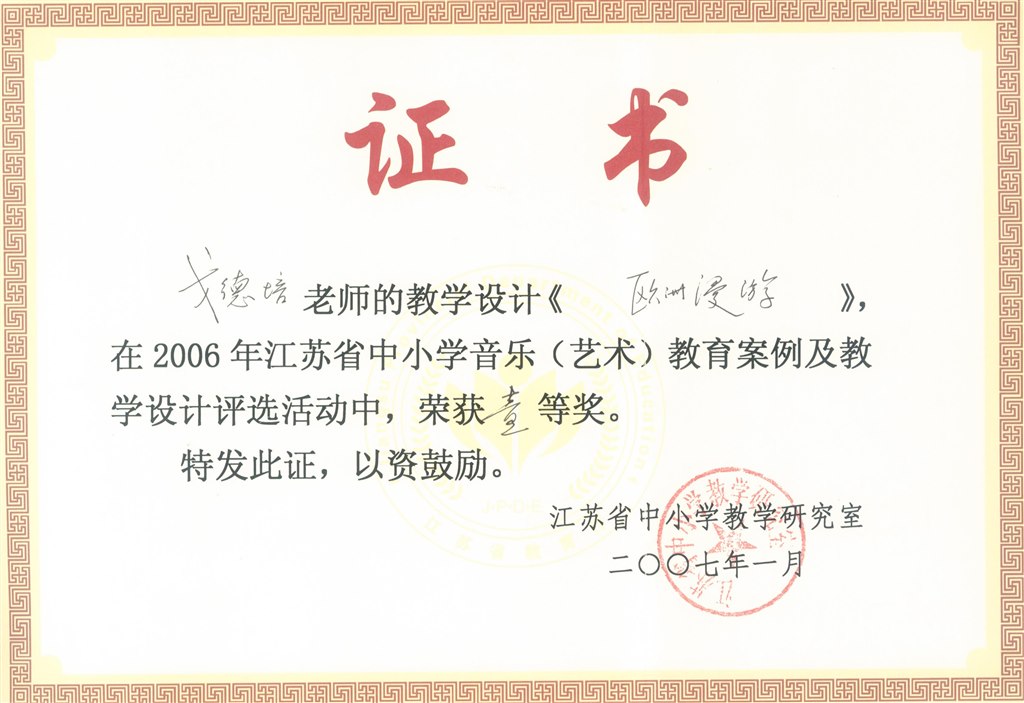 证书
戈德培老师的教学设计《 欧洲漫游 》,
在 2006 年江苏省中小学音乐（艺术）教育案例及教
学设计评选活动中，荣获壹等奖。
特发此证，以资鼓励。
江苏省中小学教学研究室
二〇〇七年一月
江苏省中小学教学研究室
J·P·D·E